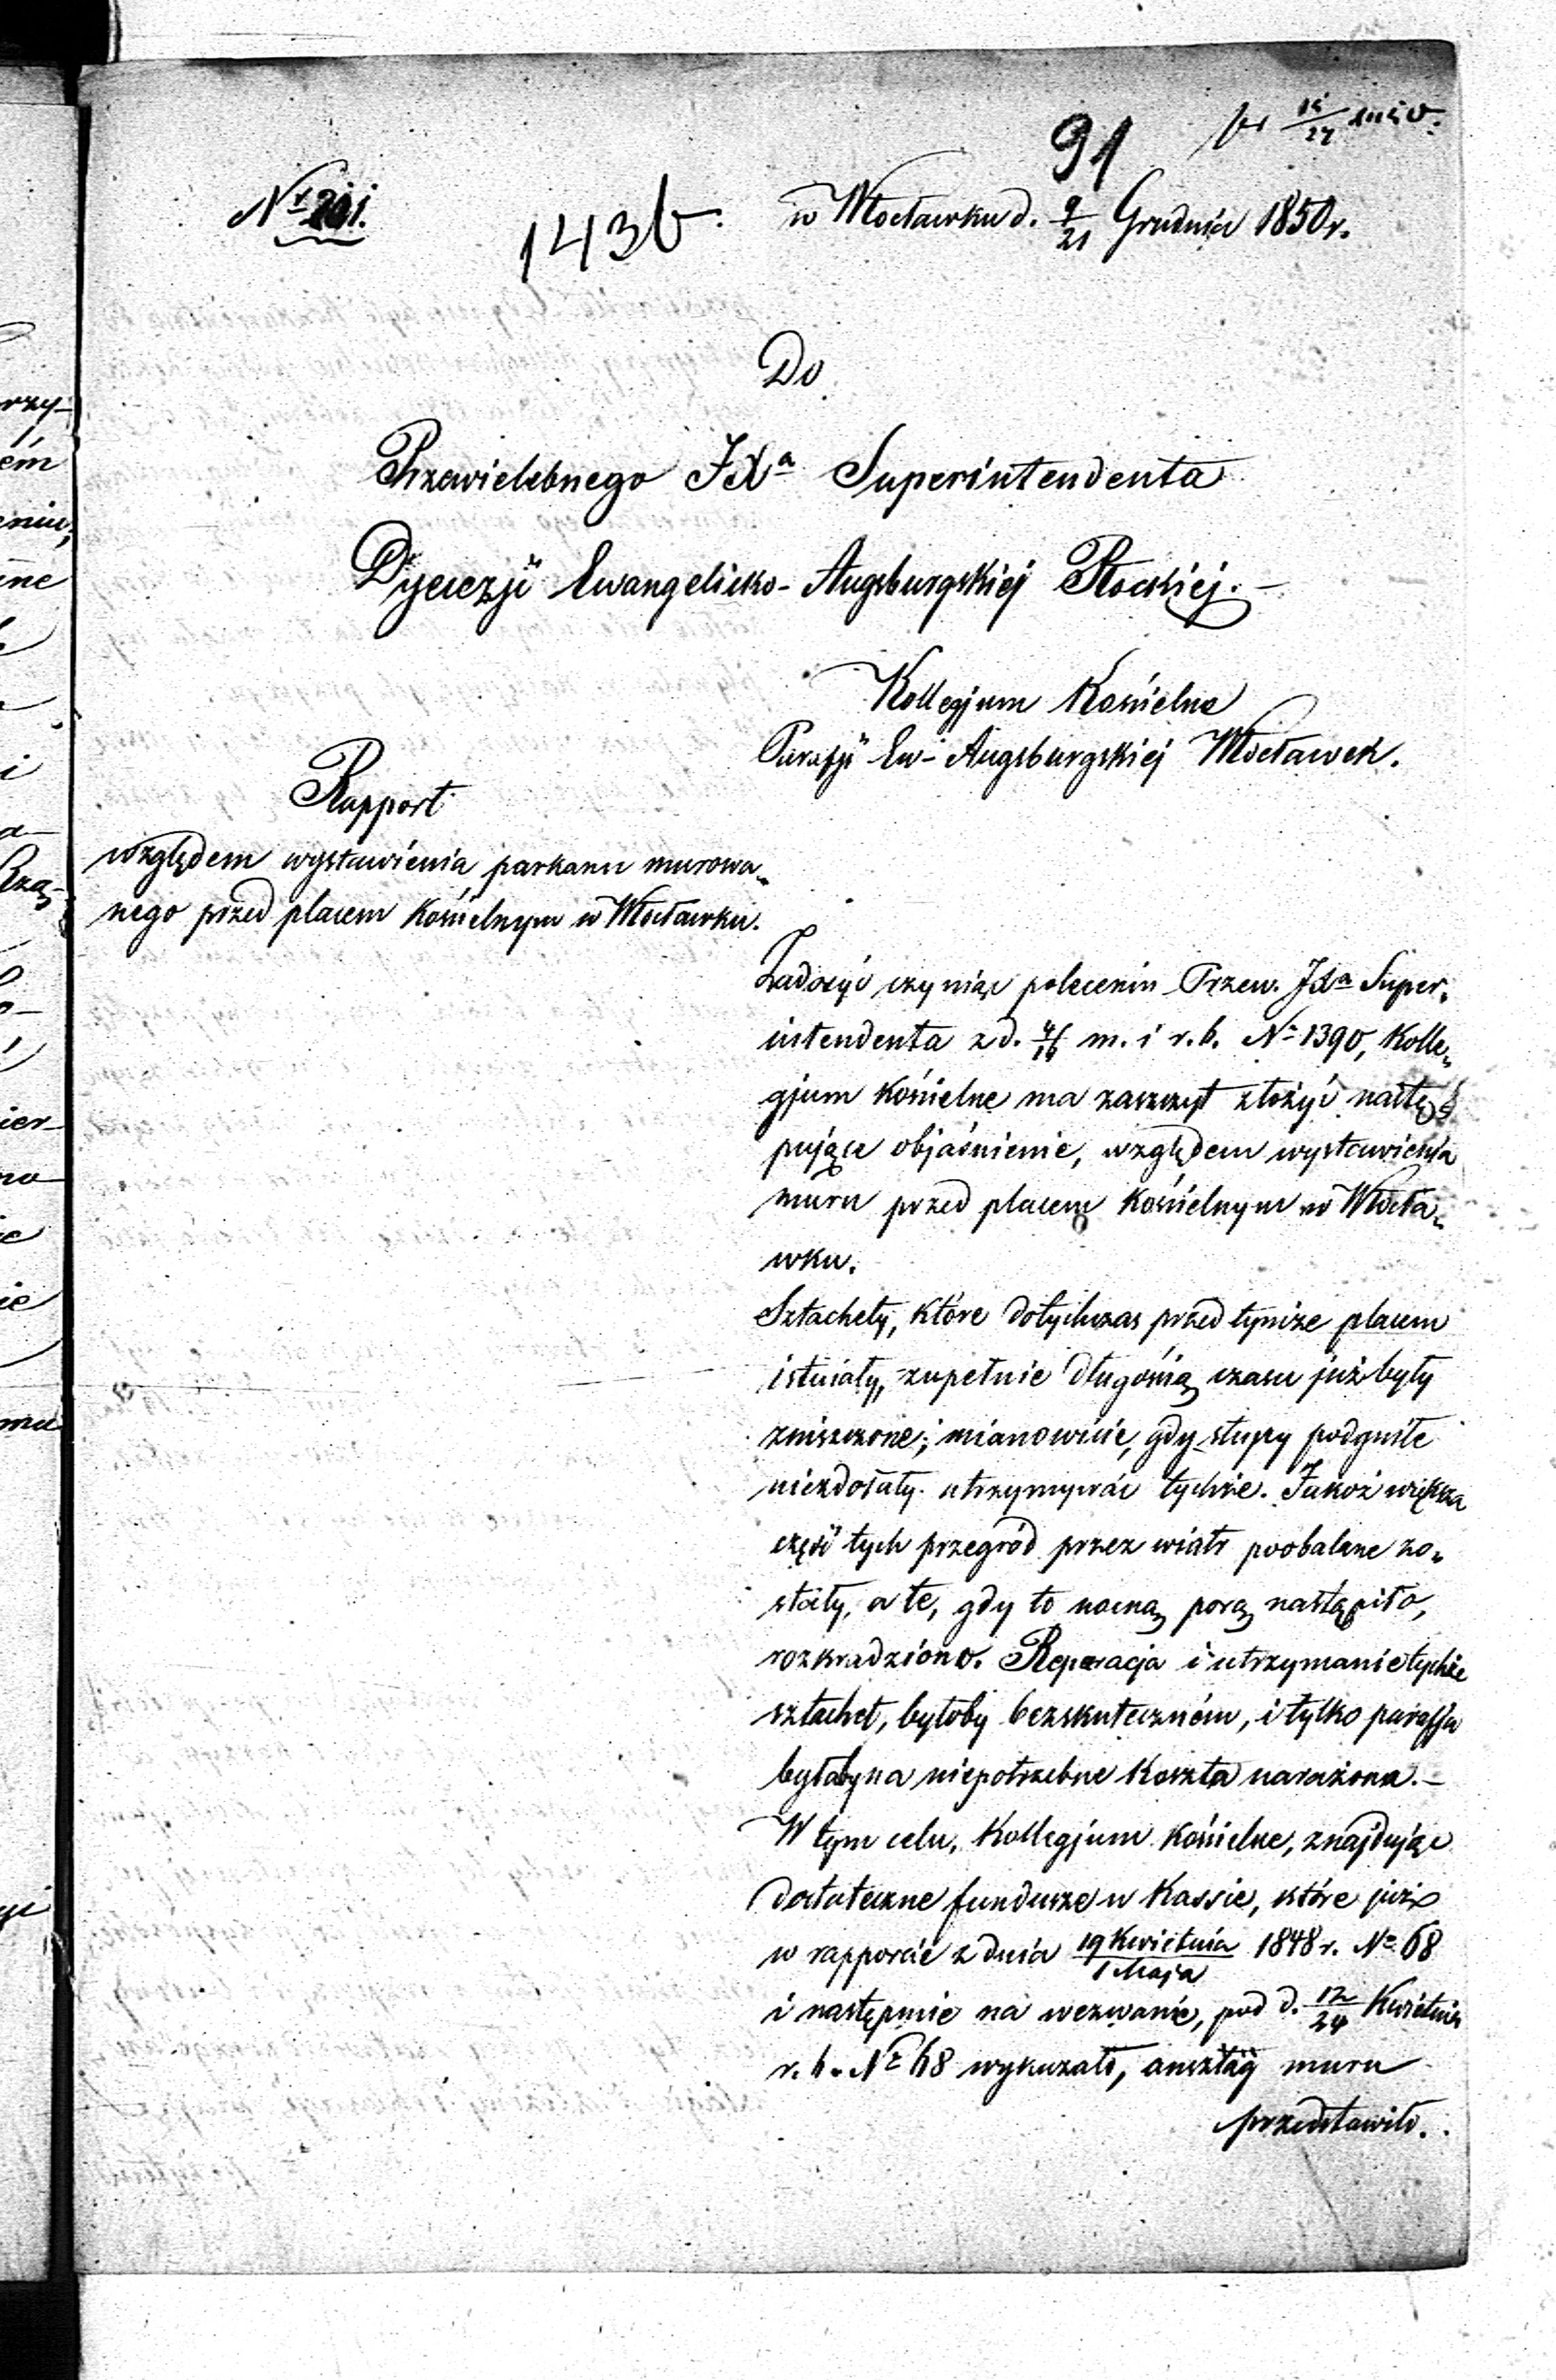 91
Nr 201.
1436.
w Włocławku d. 9/21 Grudnia 1850 r.
Do
Przewielebnego JXa Superintendenta
Dyecezji Ewangelicko-Augsburgskiej Płockiej.-
Kollegjum Kościelne
Parafji Ew-Augsburgskiej Włocławek.
Rapport
względem wystawienia parkanu murowa-
nego przed placem Kościelnym w Włocławku.
Zadosyć czyniąc poleceniu Przew. JXa Super-
intendenta z d. 4/16 m. i r. b. No 1390, Kolle-
gjum Kościelne ma zaszczyt złożyć nastę-
pujące objaśnienie, względem wystawienia
muru przed placem Kościelnym w Włocła-
wku.
Sztachety, które dotychczas przed tymże placem
istniały, zupełnie długością czasu już były
zniszczone; mianowicie, gdy słupy podgniłe
niezdołały utrzymywać tychże. Jakoż większa
część tych przegród przez wiatr poobalane zo-
stały, a te, gdy to nocną porą nastąpiło,
rozkradziono. Reparacja i utrzymanie tychże
sztachet, byłoby bezskuteczném, i tylko parafja
byłaby na niepotrzebne Koszta narażona.-
W tym celu, Kollegjum Kościelne, znajdując
dostateczne fundusze w Kassie, które już
w rapporcie z dnia 19 Kwietnia/1 Maja 1848 r. No 68
i następnie na wezwanie, pod d. 12/24 Kwietnia
r. b. No 68 wykazało, anszlag muru
przedstawiło.